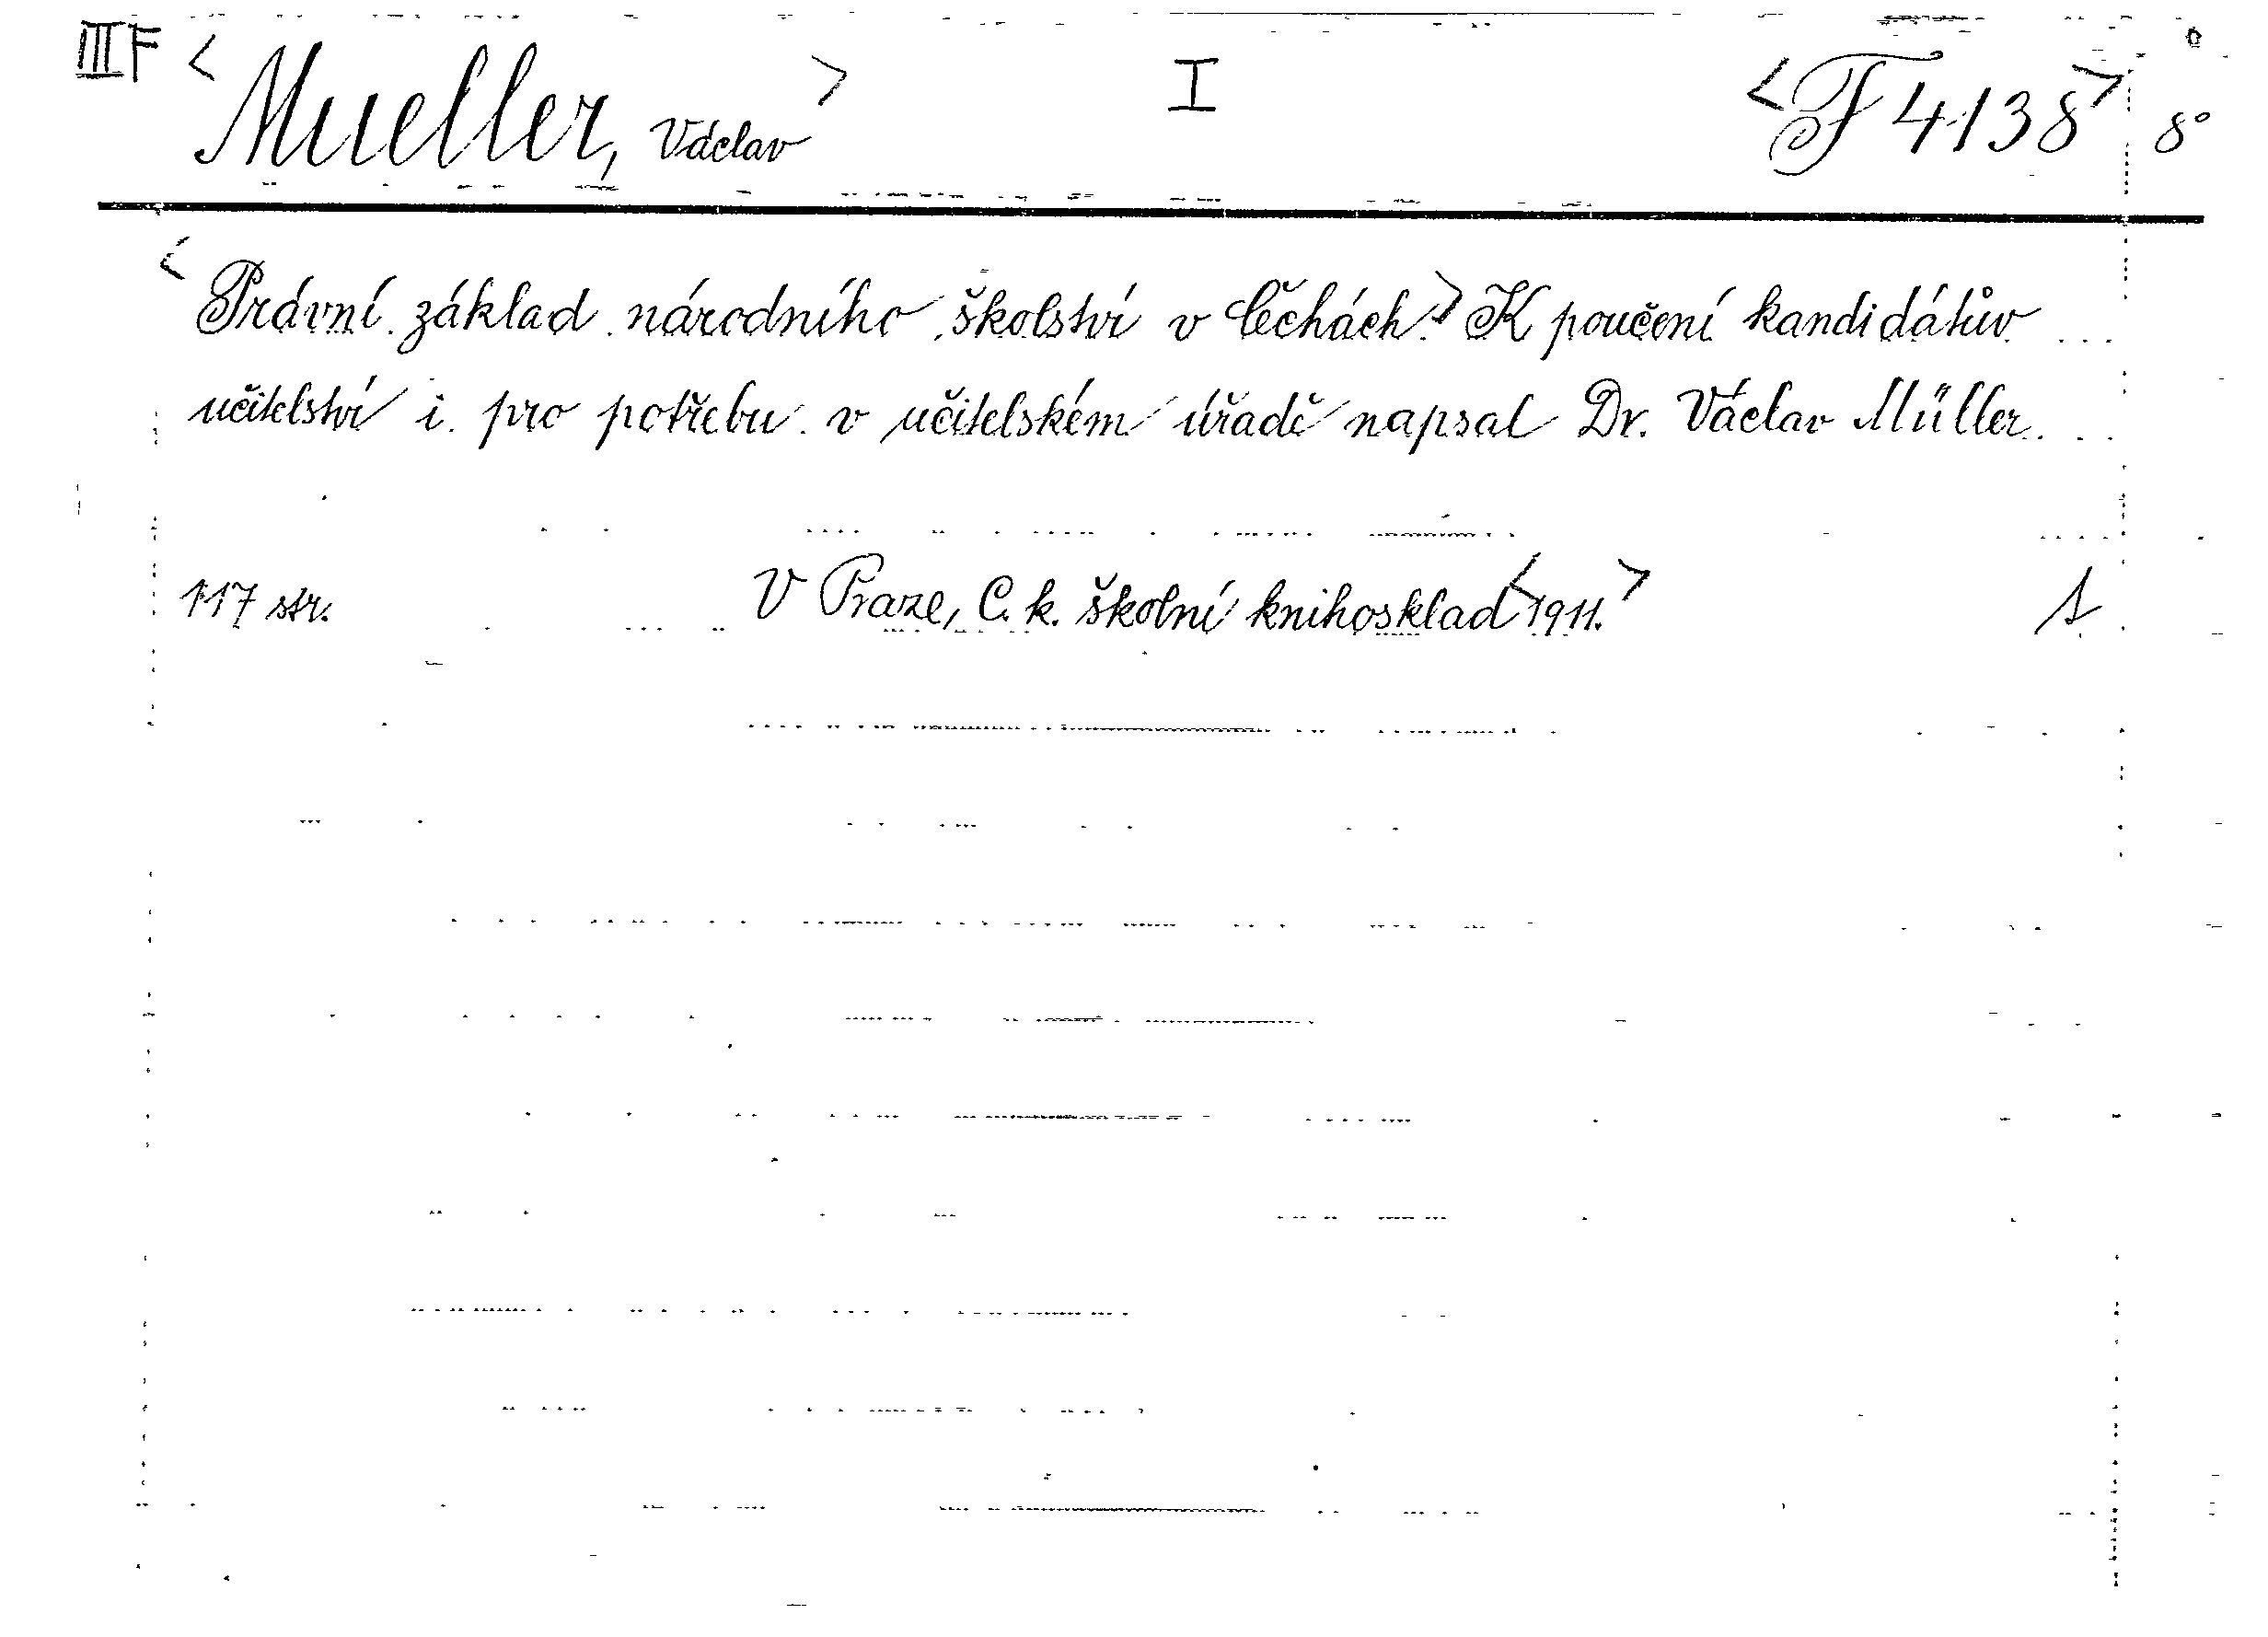 III F <Mueller, Václav> I <F 4138> 8°
<Právní základ národního školství v Čechách.> K poučení kandidátův
učitelství i pro potřebu v učitelském úřadě napsal Dr. Václav Müller.
117 str. V Praze, C. k. školní knihosklad <1911.>